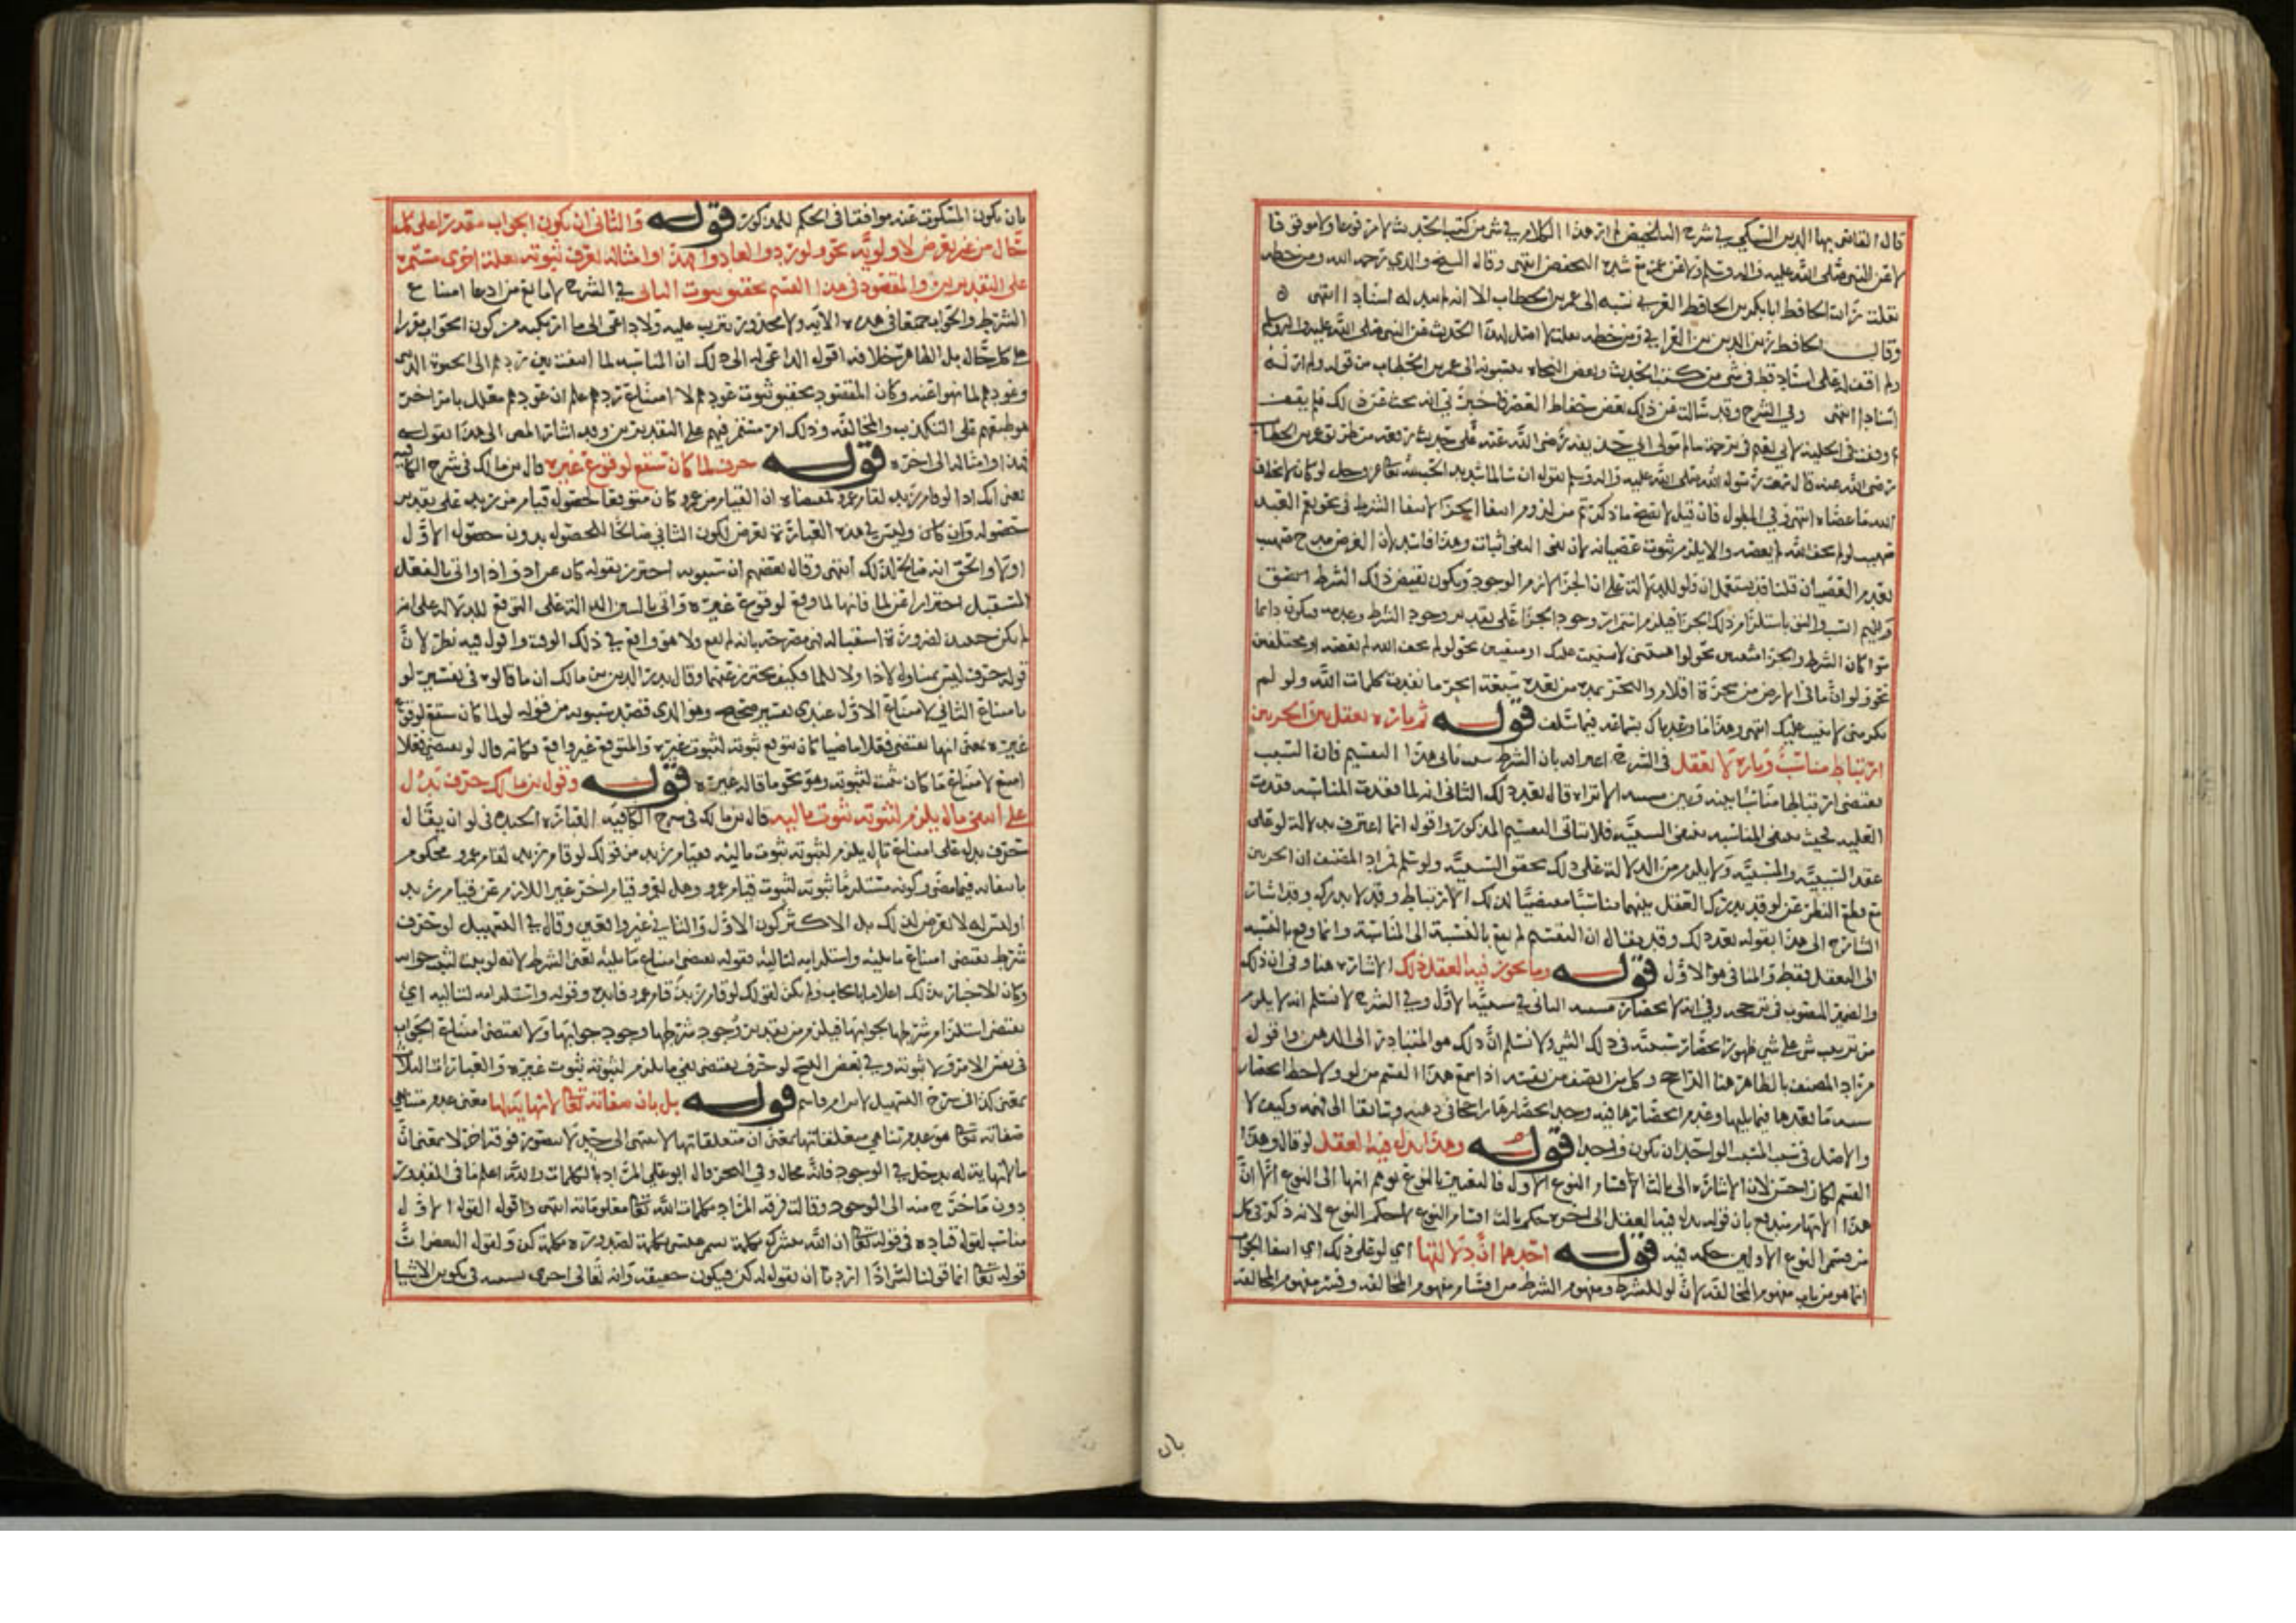 قال القاضي بها الدين السبكي في شرح التلخيص لم ار هذا الكلام في شي من كتب الحديث لا مرفوعا ولا موقوفا
لا عن النبي صلى الله عليه واله وسلم ولا عن عمر مع شدة التفحص انتهى وقال الشيخ والدي رحمه الله ومن خطه
نقلت رأيت الحافظ ابا بكر بن الحافظ العربي نسبه الى عمر بن الخطاب الا انه لم يبد له اسنادا انتهى
وقال الحافظ زين الدين بن العراقي ومن خطه نقلت لا اصل لهذا الحديث عن النبي صلى الله عليه واله وسلم
ولم اقف له على اسناد قط في شي من كتب الحديث وبعض النحاة ينسبونه الى عمر بن الخطاب من قوله ولم ار له
اسنادا انتهى وفي الشرح وقد سالت عن ذلك بعض حفاظ العصر فاخبرني انه بحث عن ذلك فلم يقف
ووقفت في الحلية لابي نعيم في ترجمة سالم مولى ابي حذيفة رضي الله عنه على حديث رفعه من طريق عمر بن الخطاب
رضي الله عنه قال سمعت رسول الله صلى الله عليه واله وسلم يقول ان سالما شديد الحب لله عز وجل لو كان لا يخاف
الله ما عصاه انتهى وفي المطول فان قيل لا يصح ما ذكرتم من لزوم انتفا الجزا لانتفا الشرط في نحو نعم العبد
صهيب لو لم يخف الله لم يعصه والا يلزم ثبوت عصيانه لان نفي النفي اثبات وهذا فاسد لان الغرض مدح صهيب
بعدم العصيان قلنا قد يستعمل ان ولو للدلالة على ان الجزا لازم الوجود ويكون نقيض ذلك الشرط
باستلزام ذلك الجزا فيلزم استمرار وجود الجزا على تقدير وجود الشرط وعدمه فيكون دايما
سوا كان الشرط والجزا مثبتين نحو لو اهنتني لاثنيت عليك او منفيين نحو لو لم يخف الله لم يعصه او مختلفين
نحو ولو ان ما في الارض من شجرة اقلام والبحر يمده من بعده سبعة ابحر ما نفدت كلمات الله ولو لم
تكرمني لاثنيت عليك انتهى وهذا ما وعدناك بتمامه فيما سلف قوله ثم تارة يعقل بين الجزين
ارتباط مناسب وتارة لا يعقل في الشرح اعترافه بان الشرط سبب ينافي هذا التقسيم فان السبب
يقتضي ارتباطا مناسبا بينه وبين مسببه الا تراه قال بعد ذلك الثاني انه لما فقدت المناسبة فقدت
العلية بحيث يعني المناسبة بمعنى السببية فلا يتاتى التقسيم المذكور واقول انما اعترف بدلالة لو على
عقد السببية والمسببية ولا يلزم من الدلالة على ذلك تحقق السببية ولو سلم فمراد المصنف ان الجزين
مع قطع النظر عن لو قد يدرك العقل بينهما مناسبا مقتضيا لذلك الارتباط وقد لا يدركه وقد اشار
الشارح الى هذا بقوله بعد ذلك وقد يقال ان التقسيم لم يقع بالنسبة الى المناسبة وانما وقع بالنسبة
الى التعقل فقط والمنافي هو الاول قوله وما يجوز فيه العقل ذلك الاشارة هنا وفي ان ذلك
والضمير المنصوب في ترجحه وفي انه لانحصار مسببه الثاني في سببية الاول وفي الشرح لا نسلم انه لا يلزم
من ترتيب شي على شي ظهور انحصار سببيته في ذلك الشي ولا نسلم ان ذلك هو المتبادر الى الذهن واقول
مراد المصنف بالظاهر هنا الراجح وكل من انصف من نفسه اذا سمع هذا القسم من لو ولاحظ انحصار
سبب ما بعدها فيما يليها وعدم انحصارها فيه وجد انحصارها راجحا في ذهنه وسابقا الى فهمه وكيف لا
والاصل في سبب المسبب الواحد ان يكون واحدا قوله وهذا يدل فيه العقل لو قال وهذا
القسم لكان احسن لان الاشارة الى ثالث اقسام النوع الاول فالتعبير بالنوع يوهم انها الى النوع الا ان
هذا الايهام مندفع بان قوله يدل فيه العقل الى اخره حكم ثالث اقسام النوع لا حكم النوع لانه ذكر في كل
من قسمي النوع الاولين حكمه فيه قوله احدهما ان دلالتها اي لو على ذلك اي انتفا الجواب
انما هو من باب مفهوم المخالفة لان لو للشرط ومفهوم الشرط من اقسام مفهوم المخالفة وفسر مفهوم المخالفة
بان
بان يكون المسكوت عنه موافقا في الحكم للمذكور قوله والثاني ان يكون الجواب مقدرا على كل
حال من غير تعرض لاولوية نحو ولو ردوا لعادوا فهذا وامثاله يعرف ثبوته بعلة اخرى مستمرة
على التقديرين والمقصود في هذا القسم تحقيق ثبوت الثاني في الشرح لا مانع من ادعا امتناع
الشرط والجواب جميعا في هذه الاية ولا محذور يترتب عليه ولا داعي الى ما ارتكبه من كون الجواب مقررا
على كل حال بل الظاهر خلافه اقول الداعي له الى ذلك ان المناسبة لما انتفت بين ردهم الى الحيوة الدنيا
وعودهم لما نهوا عنه وكان المقصود تحقيق ثبوت عودهم لا امتناع ردهم علم ان عودهم معلل بامر اخر
هو طبعهم على التكذيب والمخالفة وذلك امر مستمر فيهم على التقديرين وقد اشار المص الى هذا بقوله
فهذا وامثاله الى اخره قوله حرف لما كان سيقع لوقوع غيره قال بن مالك في شرح الكافية
يعني انك اذا قلت لو قام زيد لقام عمرو فمقتضاه ان القيام من عمرو كان متوقعا لحصول قيام من زيد على تقدير
حصوله وان كان وليس في هذه العبارة تعرض لكون الثاني صالحا للحصول بدون حصول الاول
او لا والحق انه صالح لذلك انتهى وقال بعضهم ان سيبويه احترز بقوله كان عن اذ واذا واتى بالفعل
المستقبل احترازا عن لما فانها لما وقع لوقوع غيره واتى بالسين الدالة على التوقع للدلالة على انه
لم يكن حينئذ لضرورة استقباله فهي مصرحة بانه لم يقع ولا هو واقع في ذلك الوقت واقول فيه نظر لان
قوله حرف ليس بمتناول لاذا ولا للما فكيف يحترز عنهما وقال بدر الدين بن مالك ان ما قالوه في تفسير لو
بامتناع الثاني لامتناع الاول عندي تفسير صحيح وهو الذي قصد سيبويه من قوله لو لما كان سيقع لوقوع
غيره يعني انها تقتضي فعلا ماضيا كان يتوقع ثبوته لثبوت غيره والمتوقع غير واقع فكانه قال لو تقتضي فعلا
امتنع لامتناع ما كان يثبت لثبوته وهو نحو ما قاله غيره قوله وقول بن مالك حرف يدل
على انتفا تال يلزم لثبوته ثبوت تاليه قال بن مالك في شرح الكافية العبارة الجيدة في لو ان يقال
حرف يدل على امتناع تال يلزم لثبوته ثبوت تاليه فقيام زيد من قولك لو قام زيد لقام عمرو محكوم
بانتفائه فيما مضى وكونه مستلزما ثبوته لثبوت قيام عمرو وهل لعمرو قيام اخر غير اللازم عن قيام زيد
او ليس له لا تعرض لذلك بل الاكثر كون الاول والثاني غير واقعين وقال في التسهيل لو حرف
شرط يقتضي امتناع ما يليه واستلزامه لتاليه فقوله يقتضي امتناع ما يليه يعني الشرط لانه لو ثبت لثبت جوابه
وكان الاخبار بذلك اعلاما بايجاب ولم يكن لقولك لو قام زيد قام عمرو فايدة وقوله واستلزامه لتاليه اي
يقتضي استلزام شرطها لجوابها فيلزم من تقدير وجود شرطها وجود جوابها ولا يقتضي امتناع الجواب
في نفس الامر ولا ثبوته وفي بعض النسخ لو حرف يقتضي نفي ما يلزم لثبوته ثبوت غيره والعبارات الثلاث
بمعنى كذا في شرح التسهيل لابن ام قاسم قوله بل بان صفاته تعالى لا نهاية لها معنى عدم تناهي
صفاته تعالى هو عدم تناهي متعلقاتها بمعنى ان متعلقاتها لا تنتهي الى حد لا يتصور فوقه اخر لا بمعنى ان
ما لا نهاية له يدخل في الوجود فانه محال وفي البحر قال ابو علي المراد بالكلمات والله اعلم ما في المقدور
دون ما خرج منه الى الوجود وقالت فرقة المراد بكلمات الله تعالى معلوماته انتهى واقول القول الاول
مناسب لقول قتادة في قوله تعالى ان الله يبشرك بكلمة سمي عيسى كلمة لصدوره بكلمة كن ولقول البعض ان
قوله تعالى انما قولنا لشي اذا اردناه ان نقول له كن فيكون حقيقة وانه تعالى اجرى سنته في تكوين الاشيا